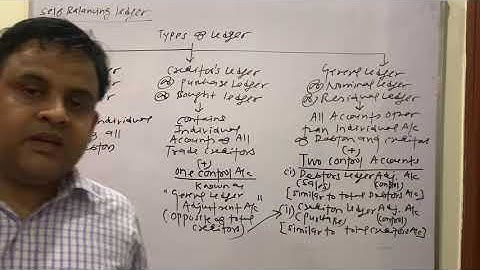 Self Balancing Ledger
Types of Ledger
Creditor's Ledger
(or) Purchase Ledger
(or) Bought Ledger
contains
Individual
Accounts of All
Trade Creditors
(+)
one control A/c
Known as
"General Ledger
Adjustment A/c"
(opposite of total
creditors)
General Ledger
(or) Nominal Ledger
(or) Residual Ledger
All Accounts Other
than Individual A/c
of Debtors and creditors
(+)
Two control Accounts
(i) Debtors Ledger Adj. A/c
(sales) (control)
[similar to total Debtors A/c]
(ii) Creditors Ledger Adj. A/c
(purchases) (control)
[similar to total creditors A/c]
Individual
all